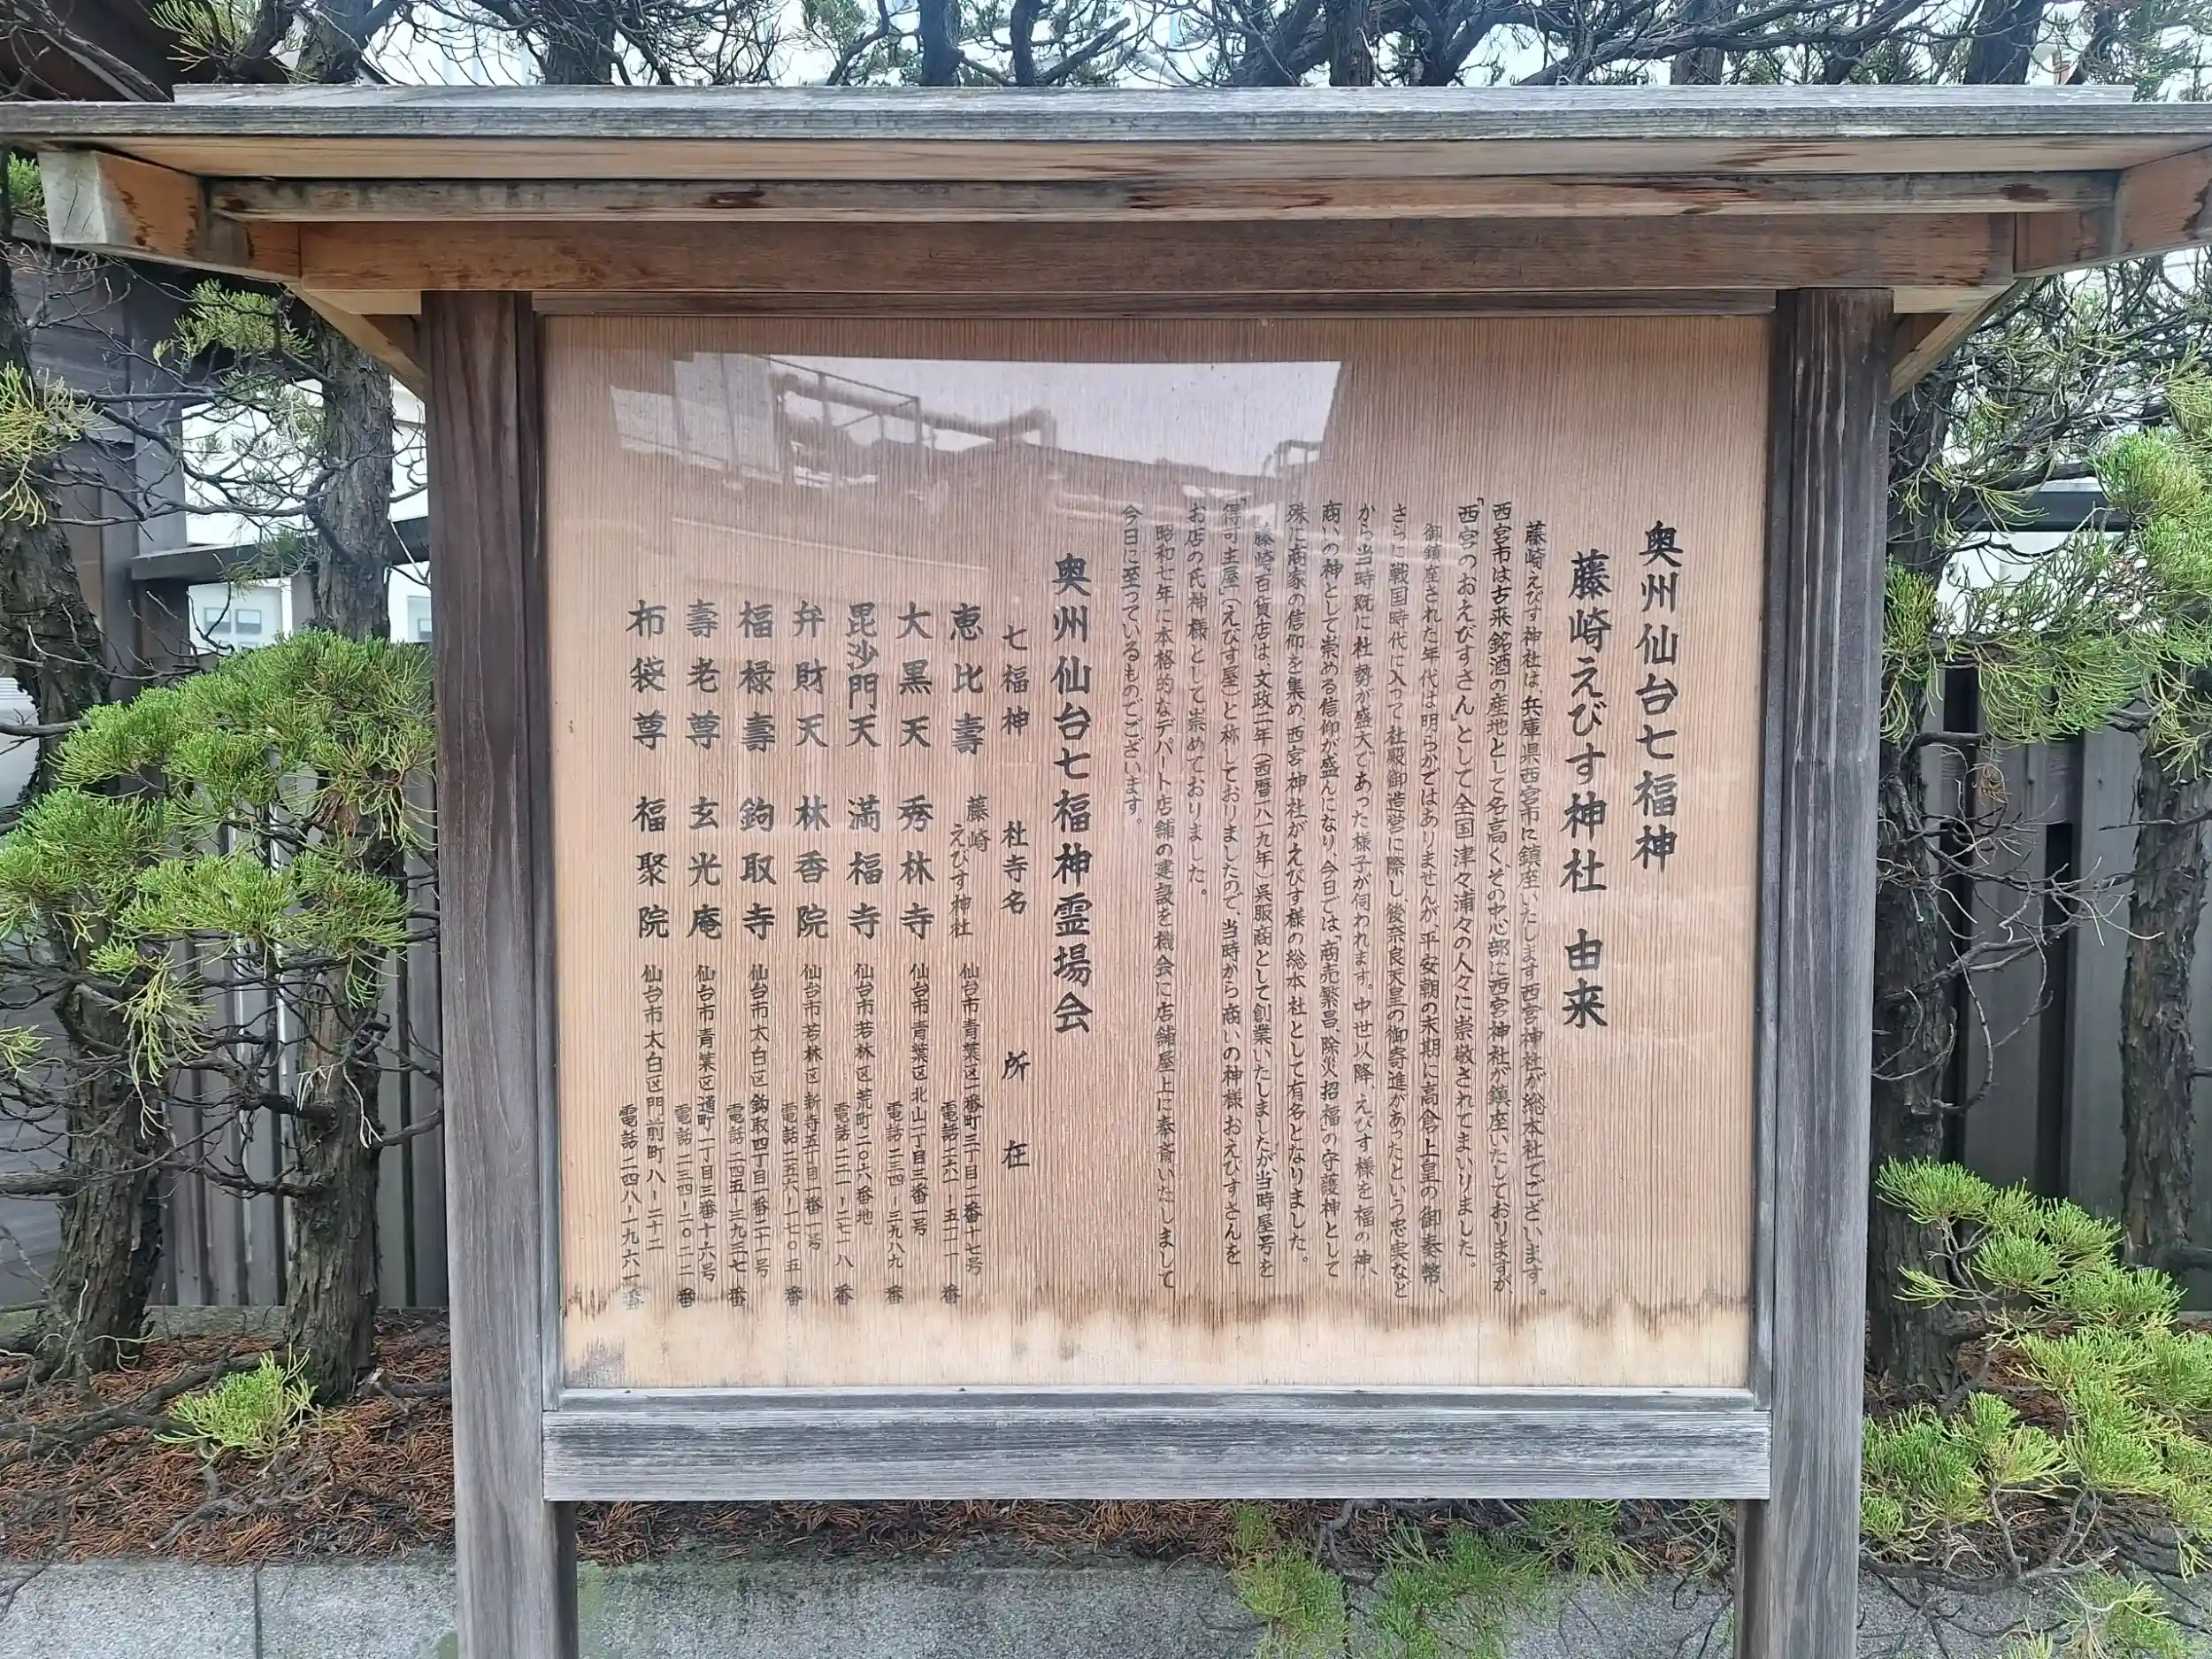 奥州仙台七福神
藤崎えびす神社 由来
藤崎えびす神社は、兵庫県西宮市に鎮座いたします西宮神社が総本社でございます。
西宮市は古来銘酒の産地として名高く、その中心部に西宮神社が鎮座いたしておりますが、
「西宮のおえびすさん」として全国津々浦々の人々に崇敬されてまいりました。
御鎮座された年代は明らかではありませんが、平安朝の末期に高倉上皇の御奏幣、
さらに戦国時代に入って社殿御造営に際し、後奈良天皇の御寄進があったという忠実など
から当時既に社勢が盛大であった様子が伺われます。中世以降、えびす様を福の神、
商いの神として崇める信仰が盛んになり、今日では、「商売繁昌、除災招福」の守護神として
殊に商家の信仰を集め、西宮神社がえびす様の総本社として有名となりました。
藤崎百貨店は、文政二年(西暦一八一九年)呉服商として創業いたしましたが、当時屋号を
「得可主屋」(えびす屋)と称しておりましたので、当時から商いの神様おえびすさんを
お店の氏神様として崇めておりました。
昭和七年に本格的なデパート店舗の建設を機会に店舗屋上に奉斎いたしまして
今日に至っているものでございます。
奥州仙台七福神霊場会
七福神 社寺名 所在
恵比壽 藤崎えびす神社 仙台市青葉区一番町三丁目二番十七号
電話二六一-五一一一番
大黒天 秀林寺 仙台市青葉区北山一丁目三番一号
電話二三四-三九八九番
毘沙門天 満福寺 仙台市若林区荒町二〇六番地
電話二二一-二七一八番
弁財天 林香院 仙台市若林区新寺五丁目一番一号
電話二五六-一七〇五番
福禄壽 鉤取寺 仙台市太白区鈎取四丁目一番二十一号
電話二四五-三九三七番
壽老尊 玄光庵 仙台市青葉区通町一丁目三番十六号
電話二三四-二〇二二番
布袋尊 福聚院 仙台市太白区門前町八-二十二
電話二四八-一九六一番